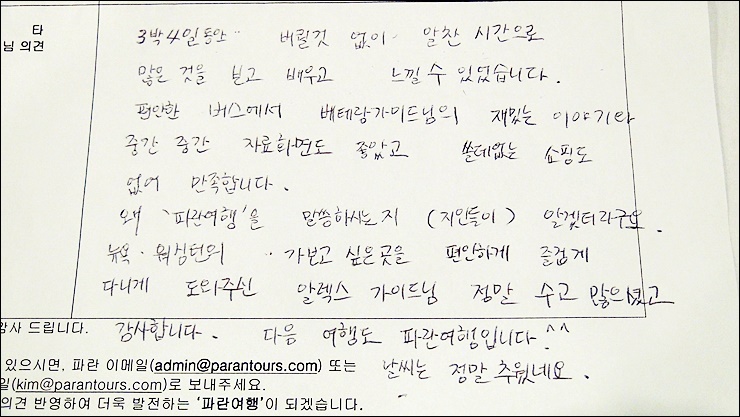 타
님 의견
3박4일동안·· 버릴것 없이 알찬 시간으로
많은 것을 보고 배우고 느낄 수 있었습니다.
편안한 버스에서 베테랑가이드님의 재밌는 이야기와
중간 중간 자료화면도 좋았고 쓸데없는 쇼핑도
없어 만족합니다.
왜 '파란여행'을 말씀하시는지 (지인들이) 알겠더라구요.
뉴욕·워싱턴의 ·· 가보고 싶은곳을 편안하게 즐겁게
다니게 도와주신 알렉스 가이드님 정말 수고 많으셨고
감사 드립니다. 감사합니다. 다음 여행도 파란여행입니다^^
있으시면, 파란 이메일(admin@parantours.com) 또는 날씨는 정말 추웠네요.
일(kim@parantours.com)로 보내주세요.
의견 반영하여 더욱 발전하는 '파란여행'이 되겠습니다.